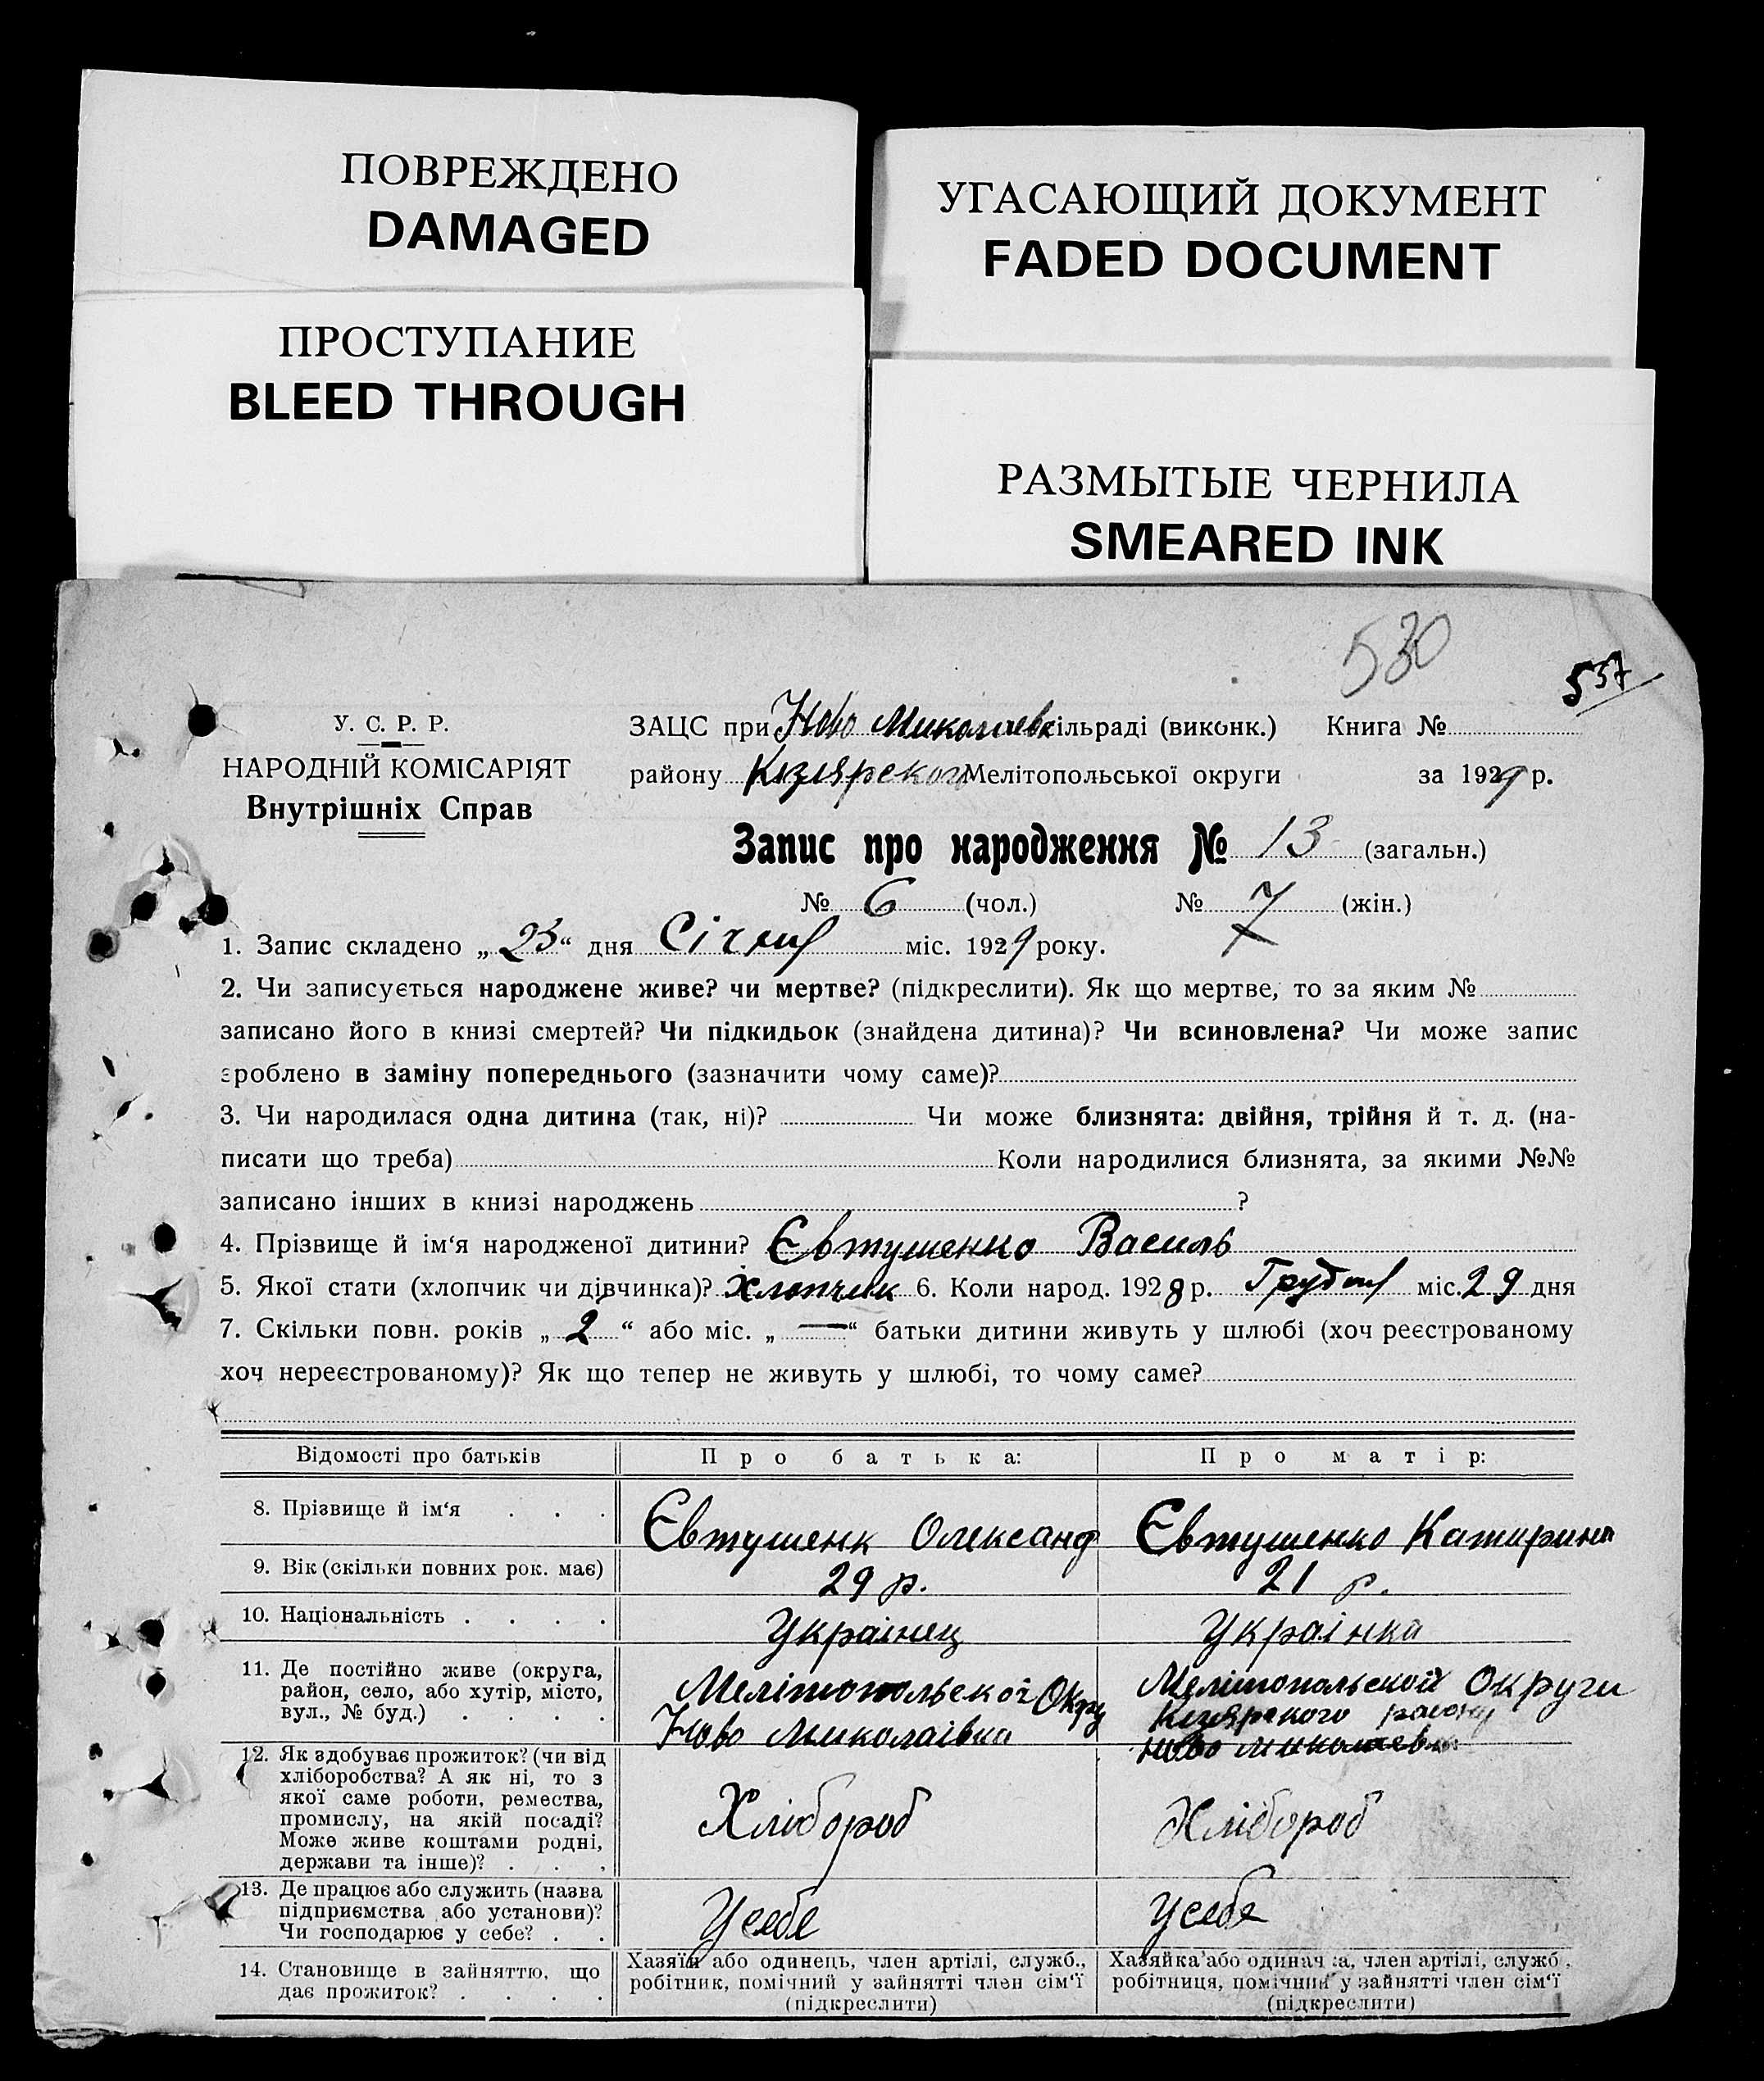 ПОВРЕЖДЕНО
DAMAGED
УГАСАЮЩИЙ ДОКУМЕНТ
FADED DOCUMENT
ПРОСТУПАНИЕ
BLEED THROUGH
РАЗМЫТЫЕ ЧЕРНИЛА
SMEARED INK
530
557
У. С. Р. Р.
НАРОДНІЙ КОМІСАРІЯТ
Внутрішніх Справ
ЗАЦС при Ново Миколаевк сільраді (виконк.) Книга №
району Кізіярского Мелітопольської округи за 1929 р.
Запис про народження № 13 (загальн.)
№ 6 (чол.) № 7 (жін.)
1. Запис складено „ 25 “ дня Січня міс. 1929 року.
2. Чи записується народжене живе? чи мертве? (підкреслити). Як що мертве, то за яким №
записано його в книзі смертей? Чи підкидьок (знайдена дитина)? Чи всиновлена? Чи може запис
зроблено в заміну попереднього (зазначити чому саме)?
3. Чи народилася одна дитина (так, ні)? Чи може близнята: двійня, трійня й т. д. (на-
писати що треба) Коли народилися близнята, за якими №№
записано інших в книзі народжень ?
4. Прізвище й ім‘я народженої дитини? Євтушенко Василь
5. Якої стати (хлопчик чи дівчинка)? Хлопчик 6. Коли народ. 1928 р. Грудня міс. 29 дня
7. Скільки повн. років „ 2 “ або міс. „ — “ батьки дитини живуть у шлюбі (хоч реєстрованому
хоч нереєстрованому)? Як що тепер не живуть у шлюбі, то чому саме?
Відомості про батьків
Про батька:
Про матір:
8. Прізвище й ім‘я . . .
Євтушенк Олександ
Євтушенко Катирина
9. Вік (скільки повних рок. має)
29 р.
21 р.
10. Національність . . . .
Украінец
Украінка
11. Де постійно живе (округа,
район, село, або хутір, місто,
вул., № буд.) . . . .
Мелітопольскоі Окру
Ново Миколаівка
Мелітопольскоій Округи
Кізіярского району
Ново Миколаевка
12. Як здобуває прожиток? (чи від
хліборобства? А як ні, то з
якої саме роботи, ремества,
промислу, на якій посаді?
Може живе коштами родні,
держави та інше)? . . .
Хлібороб
Хлібороб
13. Де працює або служить (назва
підприємства або установи)?
Чи господарює у себе? . .
Усебе
Усебе
14. Становище в зайняттю, що
дає прожиток? . . . .
Хазяїн або одинець, член артілі, служб.,
робітник, помічний у зайнятті член сім‘ї
(підкреслити)
Хазяйка або одиначка, член артілі, служб.,
робітниця, помічний у зайнятті член сім‘ї
(підкреслити)